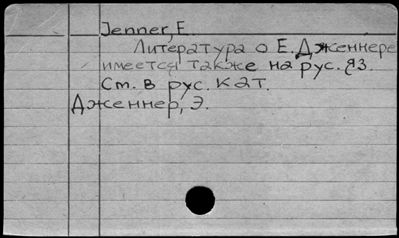 Jenner, E.
Литература о Е. Дженнере
имеется также на рус. яз.
См. в рус. кат.
Дженнер, Э.